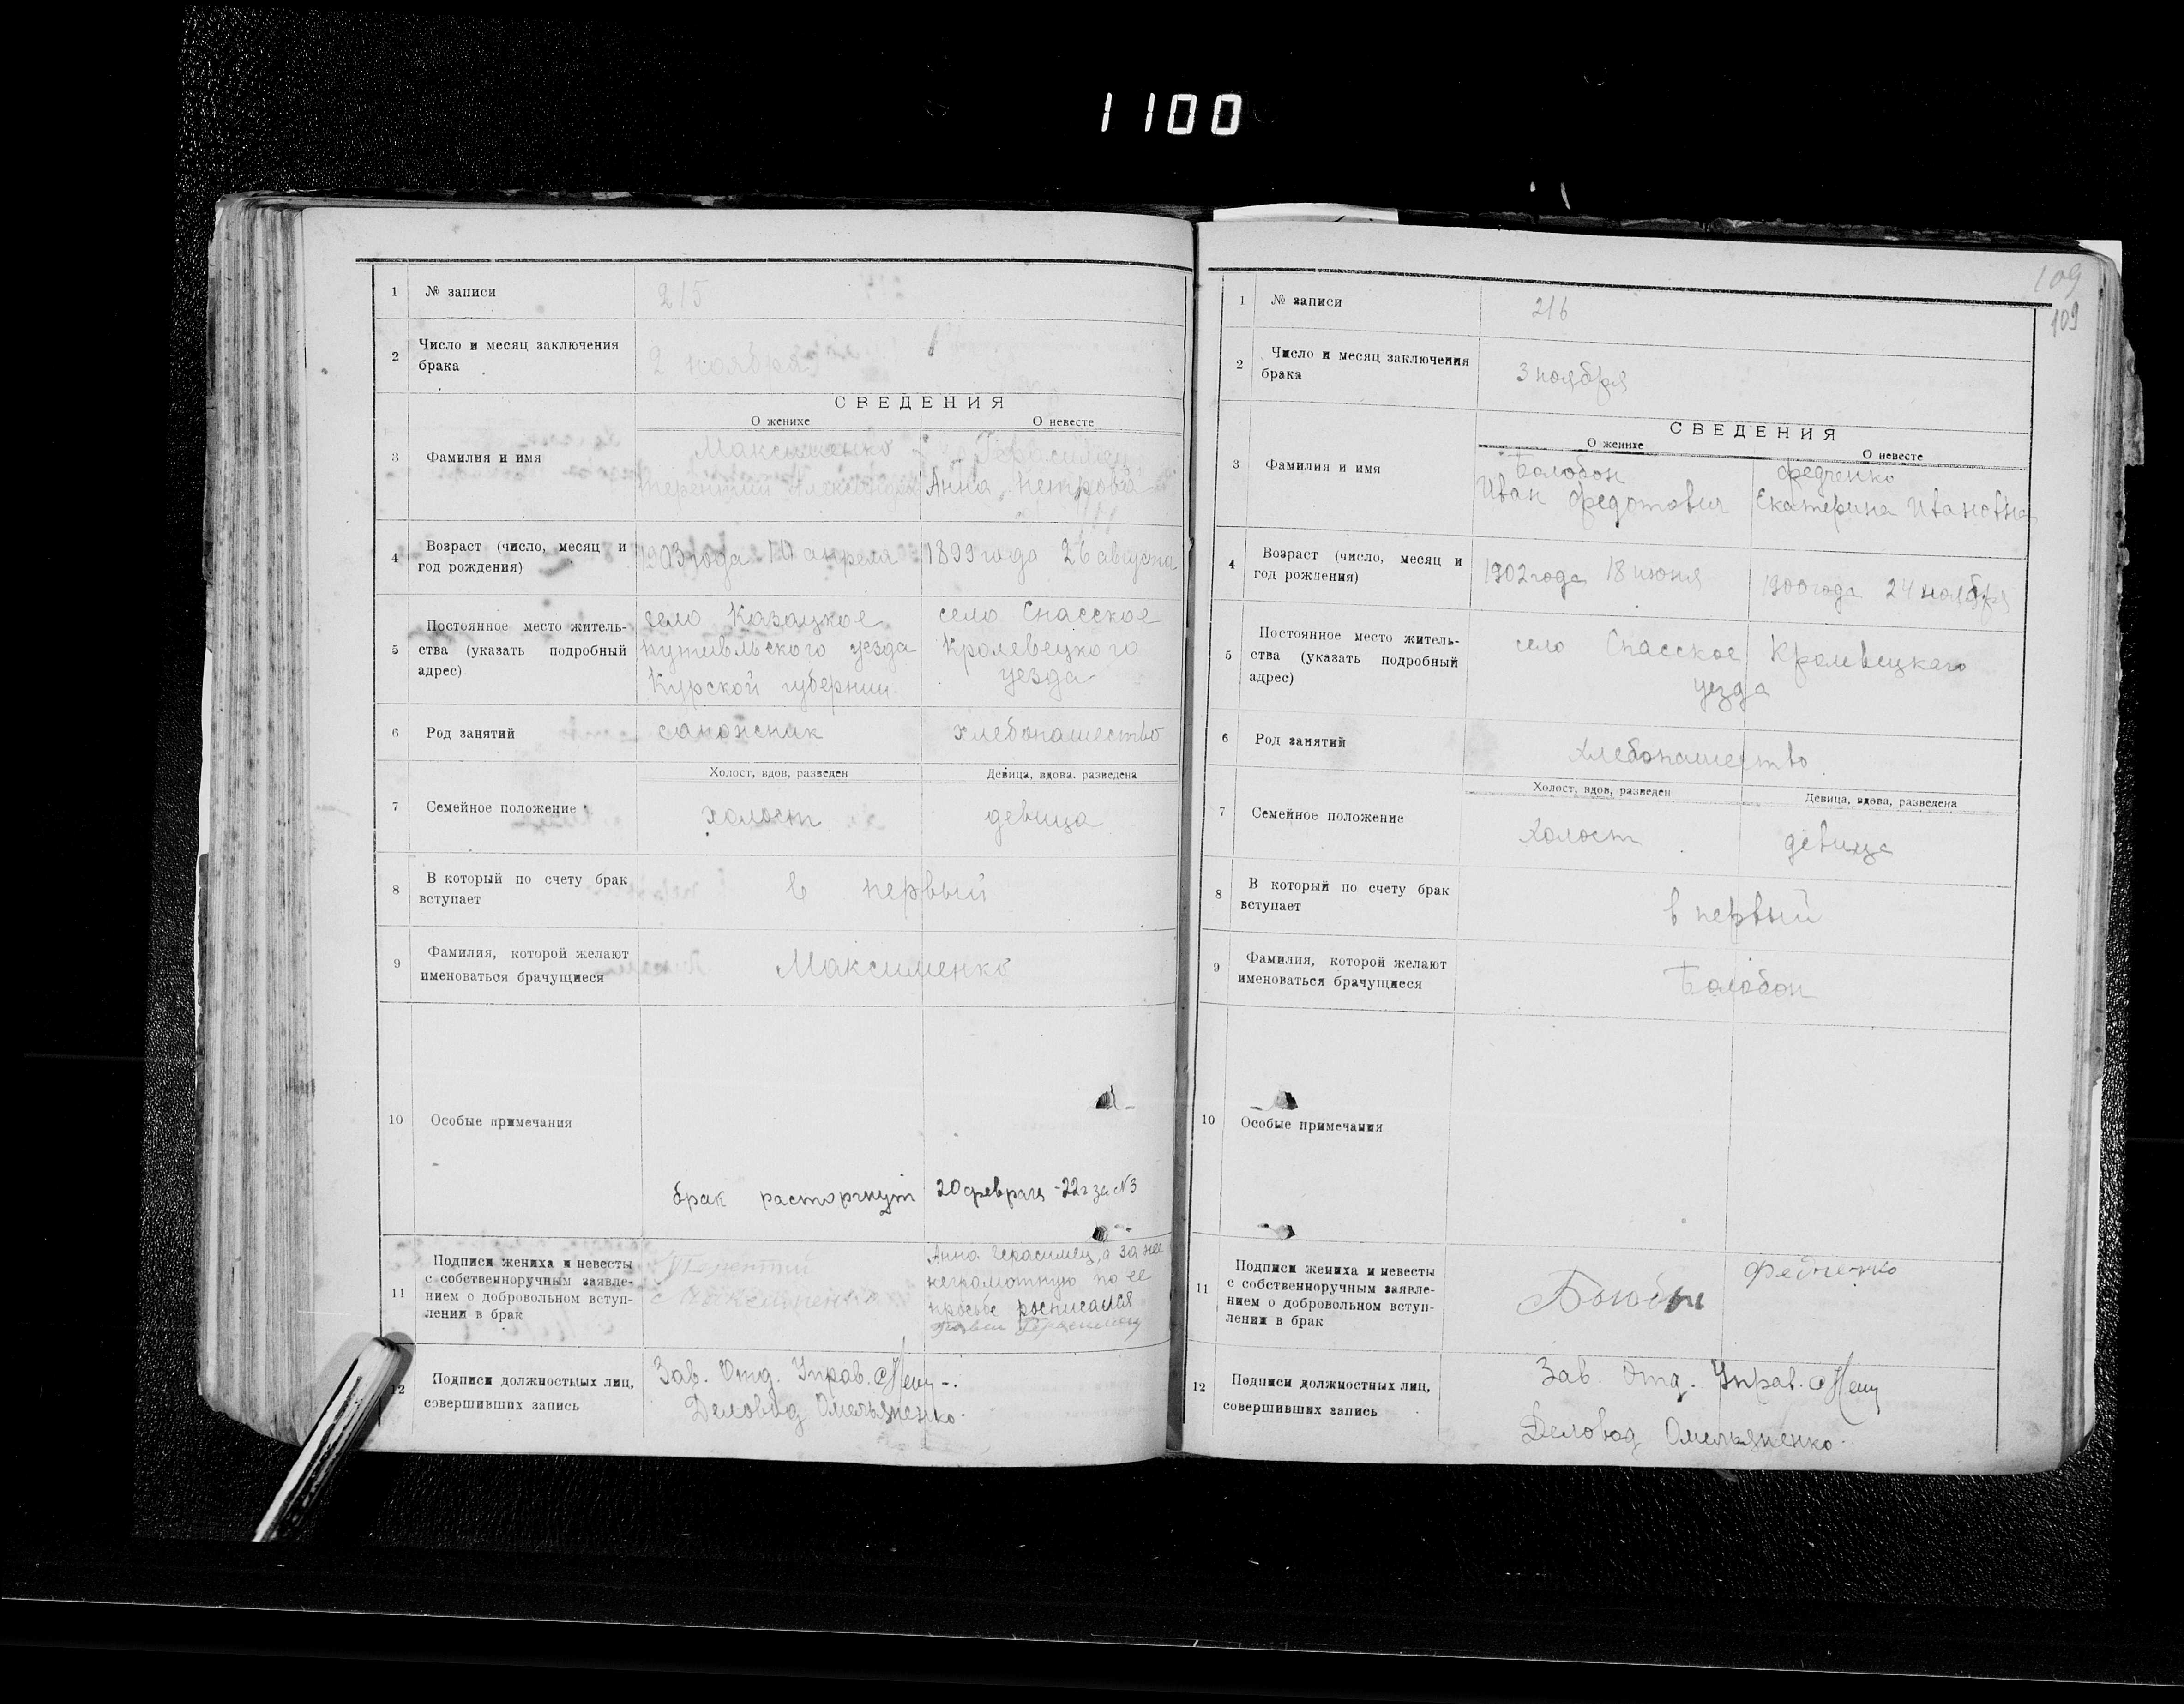 1100
1 № записи 215
2 Число и месяц заключения брака 2 ноября
СВЕДЕНИЯ
О женихе О невесте
3 Фамилия и имя
Максименко Герасимец
Терентий Анна Петрова
4 Возраст (число, месяц и год рождения)
1903 года 10 апреля 1899 года 26 августа
5 Постоянное место житель-
ства (указать подробный
адрес)
село Казацкое
путивльского уезда
Курской губернии.
село Спасское
Кролевецкого
уезда
6 Род занятий сапожник хлебопашество
Холост, вдов, разведен Девица, вдова. разведена
7 Семейное положение холост девица
8 В который по счету брак
вступает
в первый
9 Фамилия, которой желают
именоваться брачущиеся
Максименко
10 Особые примечания
брак расторгнут 20 февраля -22 г за №3
11 Подписи жениха и невесты
с собственноручным заявле-
нием о добровольном вступ-
лении в брак
Терентий
Максименко
Анна Герасимец, а за нее
неграмотную по ее
просьбе росписался
Герасимец
12 Подписи должностных лиц,
совершивших запись
Зав. Отд. Управ.
Деловод Омельяненко.
109
109
1 № записи 216
2 Число и месяц заключения
брака
3 ноября
СВЕДЕНИЯ
О женихе О невесте
3 Фамилия и имя
Болобон
Иван Федотович
Федченко
Екатерина Ивановна
4 Возраст (число, месяц и
год рождения)
1902 года 18 июня 1900 года 24 ноября
5 Постоянное место житель-
ства (указать подробный
адрес)
село Спасское Кролевецкаго
уезда
6 Род занятий хлебопашество
Холост, вдов, разведен Девица, вдова, разведена
7 Семейное положение Холост девица
8 В который по счету брак
вступает
в первый
9 Фамилия, которой желают
именоваться брачущиеся
Болобон
10 Особые примечания
11 Подписи жениха и невесты
с собственноручным заявле-
нием о добровольном вступ-
лении в брак
Федченко
12 Подписи должностных лиц,
совершивших запись
Зав. Отд. Управ.
Деловод Омельяненко.